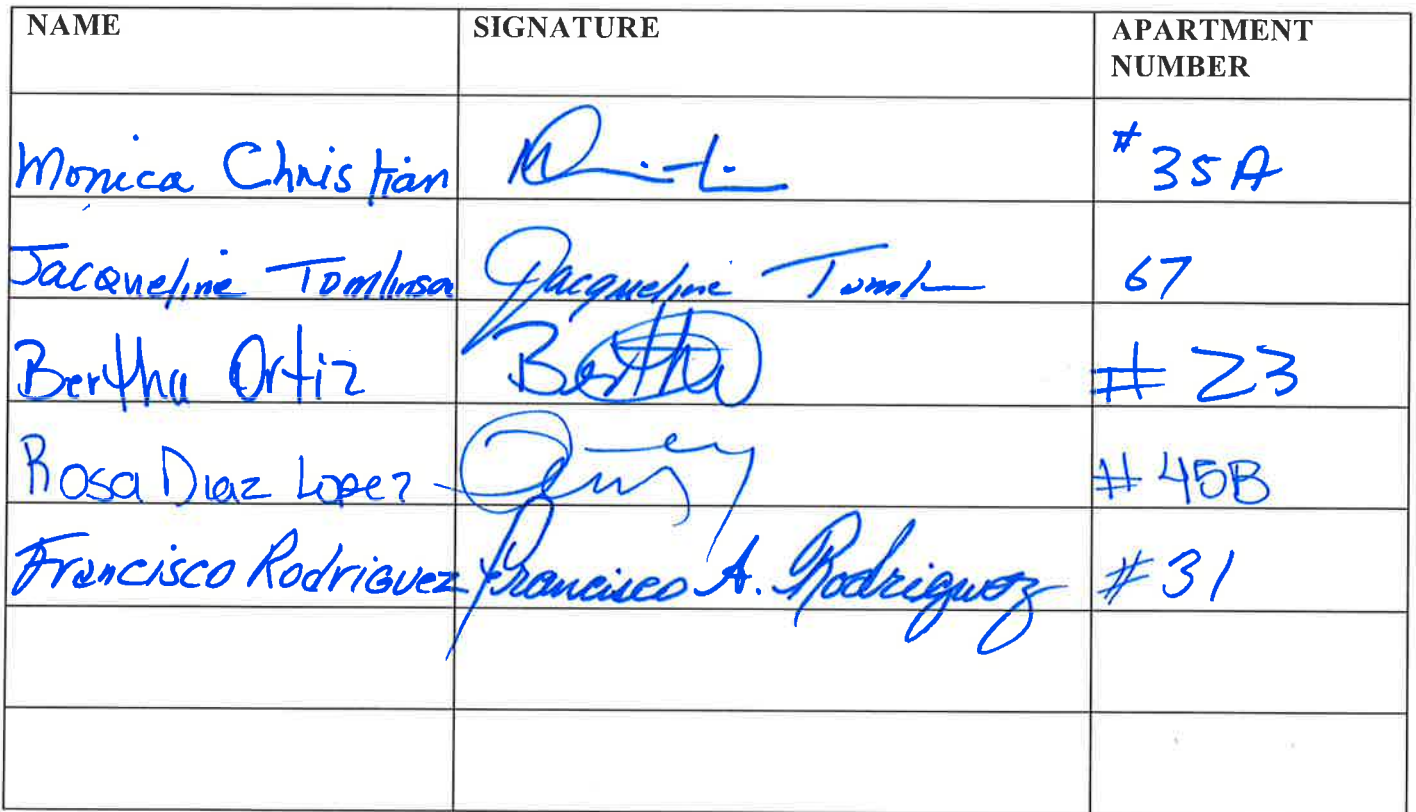 NAME SIGNATURE APARTMENT
NUMBER
Monica Christian #35A
Jacqueline Tomlinso Jacqueline Toml 67
Bertha Ortiz Bertha # 23
Rosa Diaz Lopez #45B
Francisco Rodriguez Francisco A. Rodriguez #31